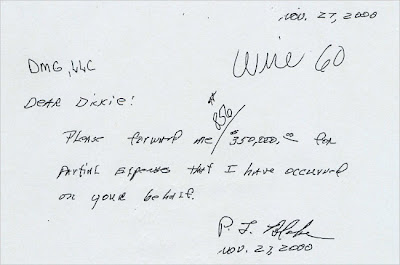 Nov. 27, 2000
Wire 60
DMG, LLC
Dear Dickie!
$350/
Please forward me $350,000.00 for
partial expenses that I have occurred
on your behalf.
P. L. Blake
Nov. 27, 2000